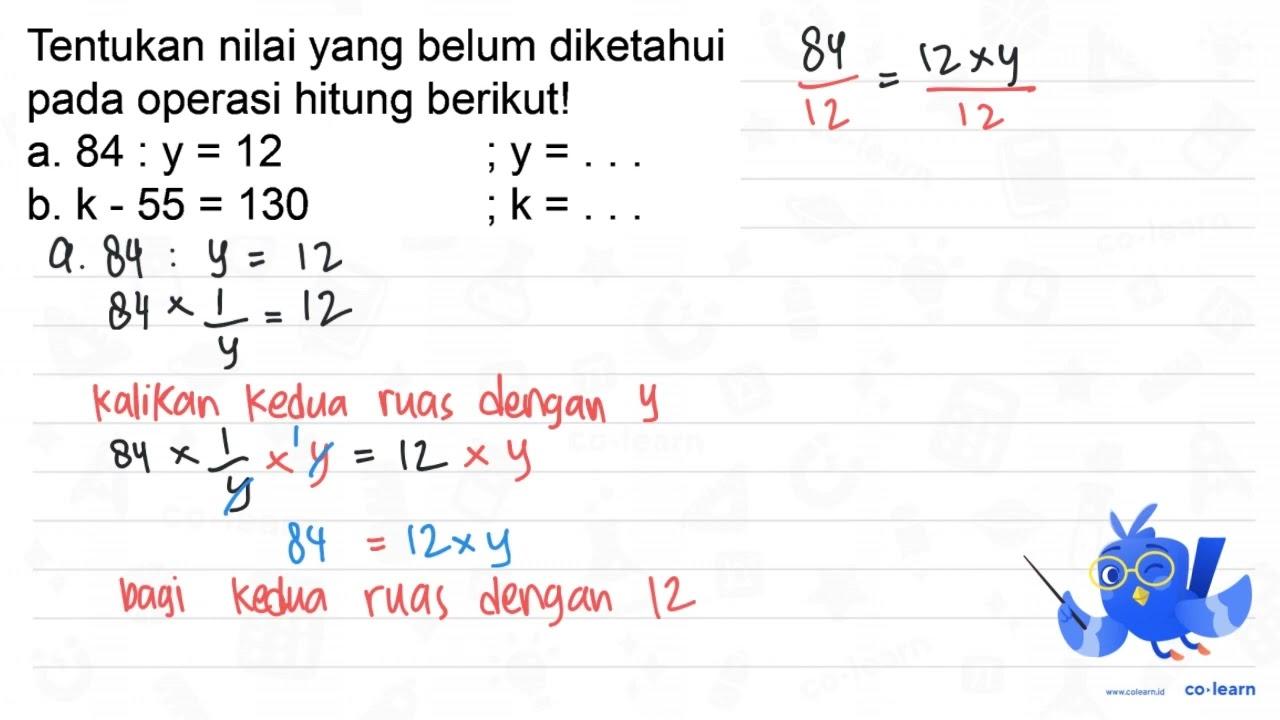 Tentukan nilai yang belum diketahui
pada operasi hitung berikut!
a. 84 : y = 12 ; y = . . .
b. k - 55 = 130 ; k = . . .
a. 84 : y = 12
84 × 1/y = 12
kalikan kedua ruas dengan y
84 × 1/y × y 1 = 12 × y
84 = 12 × y
bagi kedua ruas dengan 12
84/12 = 12 × y/12
www.colearn.id co·learn